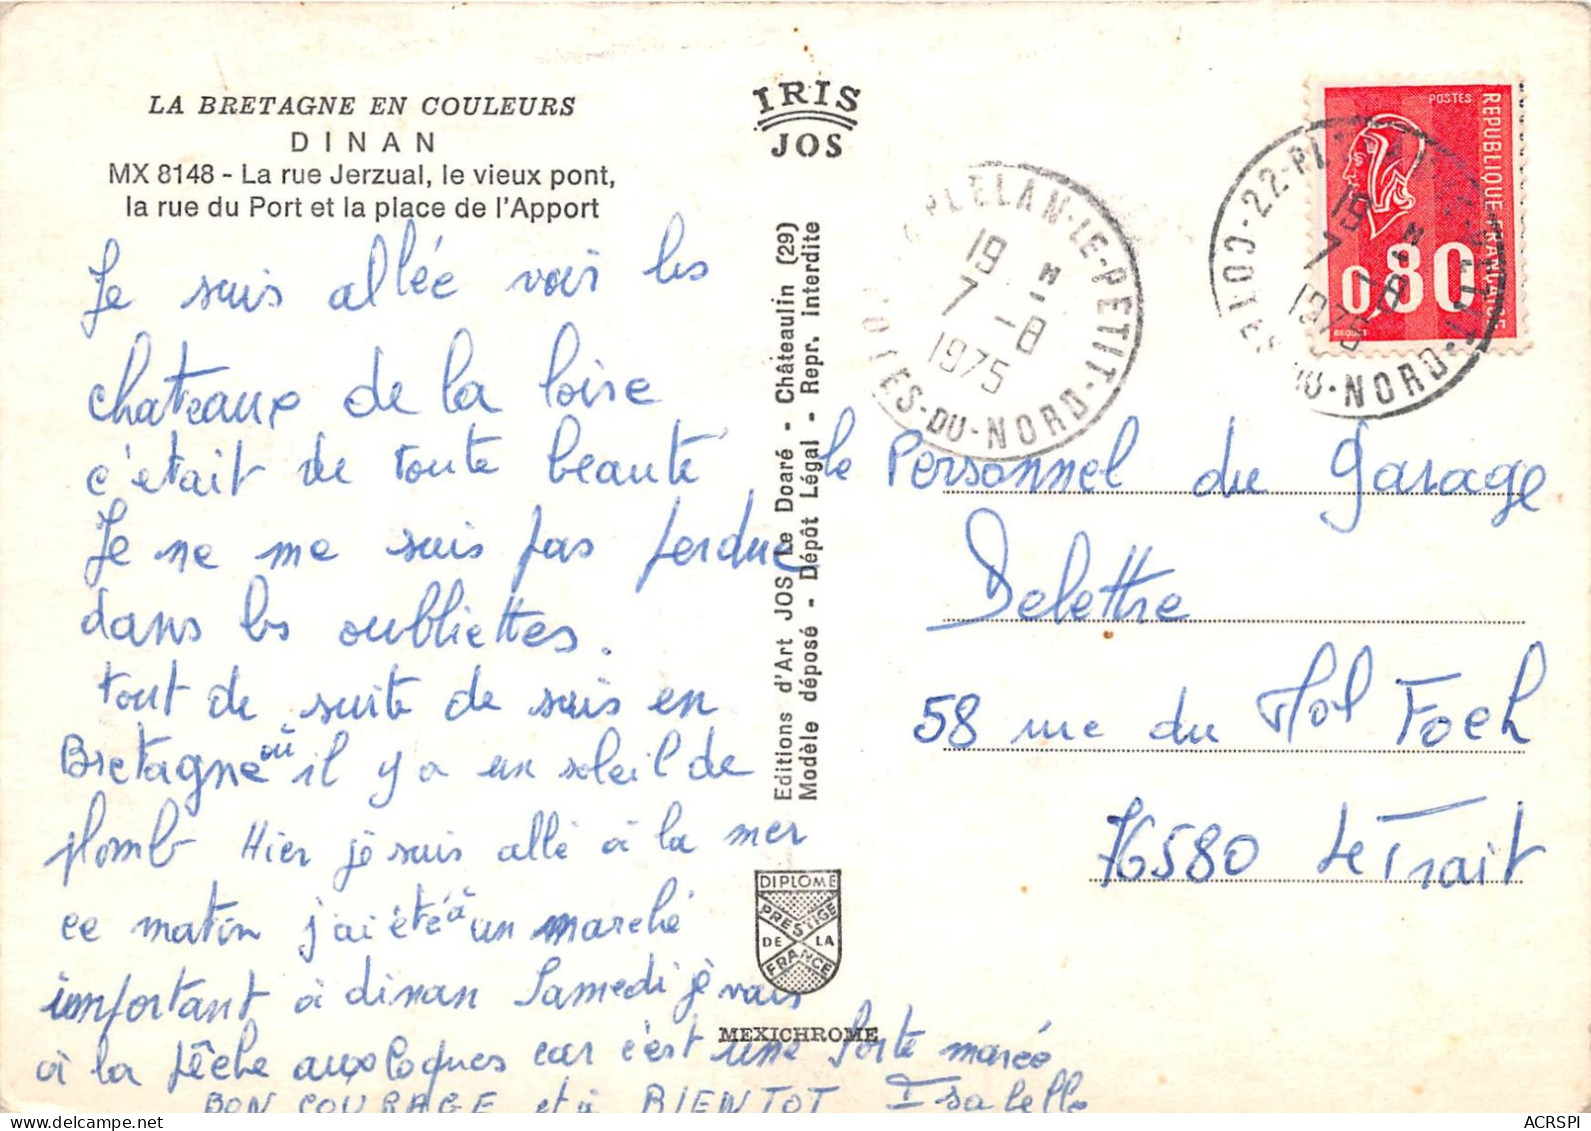 LA BRETAGNE EN COULEURS
DINAN
MX 8148 - La rue Jerzual, le vieux pont,
la rue du Port et la place de l'Apport
IRIS
JOS
Je suis allée voir les
chateaux de la loire
c'était de toute beauté
Je ne me suis pas perdue
dans les oubliettes.
tout de suite de suis en
Bretagne où il y a un soleil de
plomb Hier je suis allé à la mer
ce matin j'ai été à un marché
important à dinan Samedi je vais
à la pêche aux coques car c'est une forte marée
BON COURAGE et à BIENTOT Isabelle
Editions d'Art JOS Le Doaré - Châteaulin (29)
Modèle déposé - Dépôt Légal - Repr. interdite
DIPLOME
PRESTIGE
DE LA
FRANCE
MEXICHROME
PLELAN-LE-PETIT
19 H
7 -8
1975
COTES-DU-NORD
POSTES
REPUBLIQUE FRANCAISE
0,80
BEQUET
le Personnel du garage
Delettre
58 rue du Mol Foch
76580 Le Trait
ACRSPI